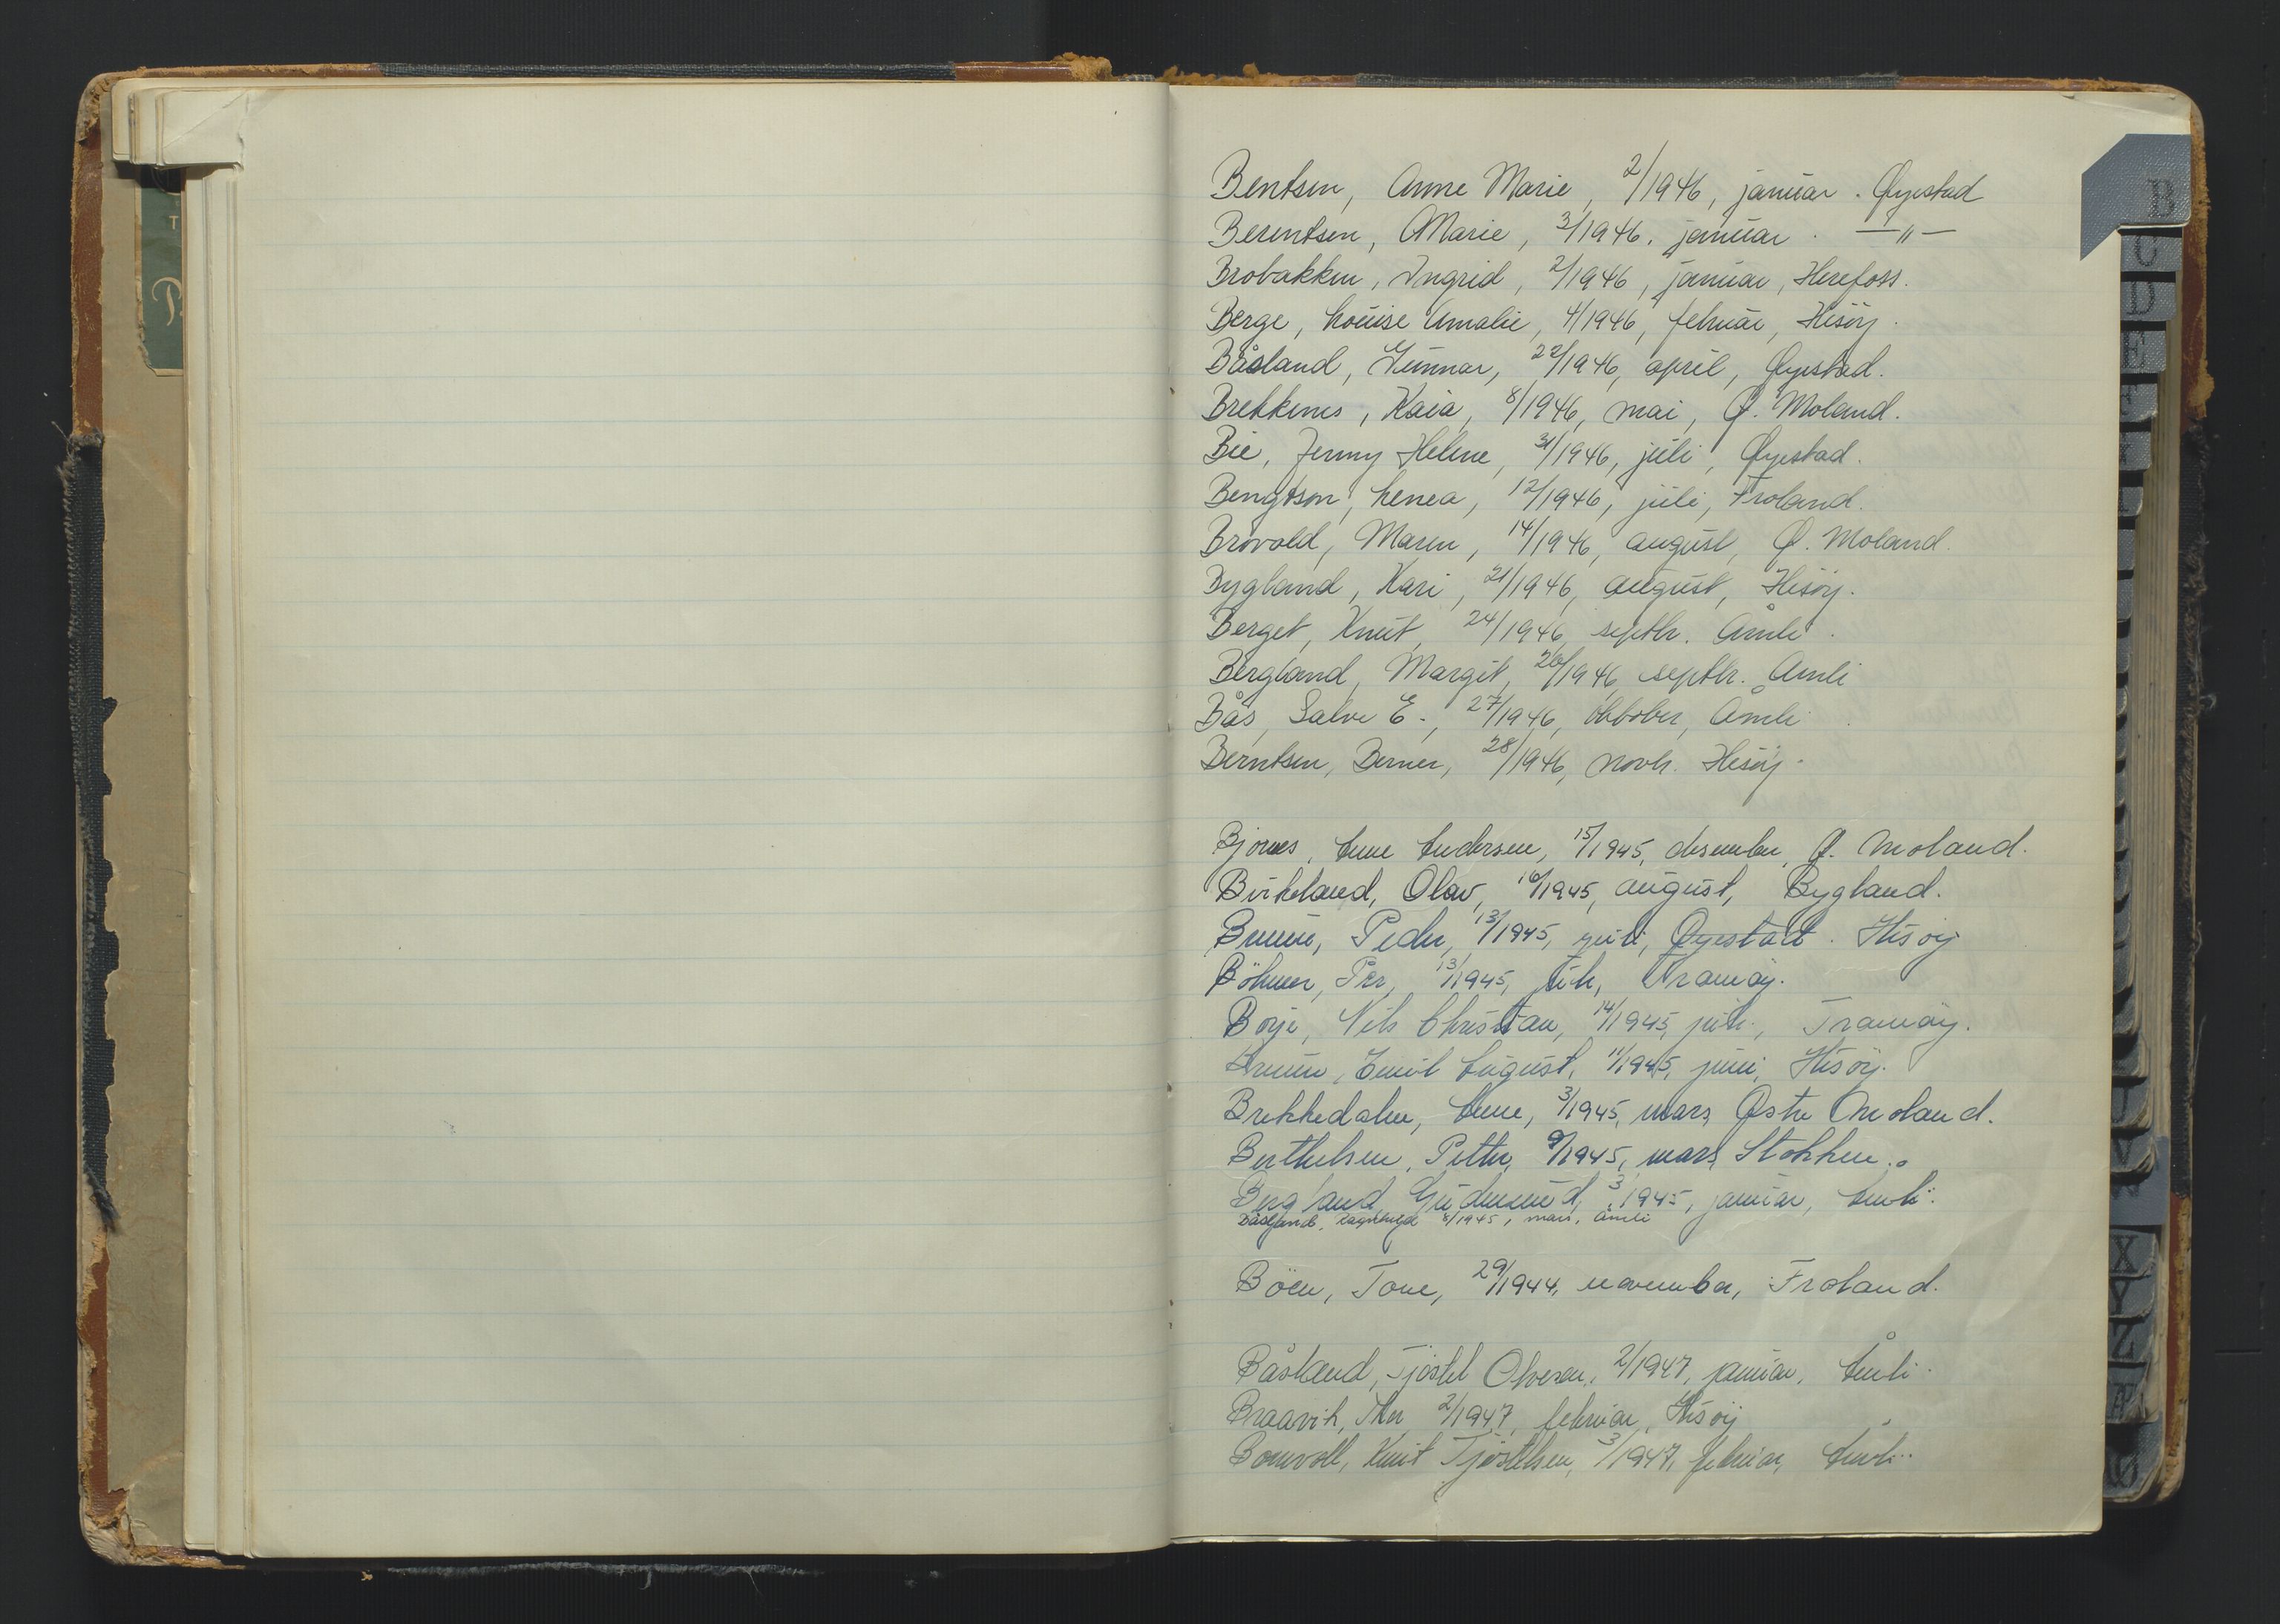 Bentsen, Anne Marie, 2/1946, januar. Øyestad
Berentsen, Marie, 3/1946, januar. —〃—
Brobakken, Ingrid, 2/1946, januar, Herefoss.
Berge, Louise Amalie, 4/1946, februar, Hisøy.
Båsland, Gunnar, 22/1946, april, Øyestad.
Brekkenes, Kaia, 8/1946, mai, Ø. Moland.
Bie, Jenny Helene, 31/1946, juli, Øyestad.
Bengtson, Lenea, 12/1946, juli, Froland.
Brovold, Maren, 14/1946, august, Ø. Moland.
Bygland, Kari, 21/1946, august, Hisøy.
Berget, Knut, 24/1946, septbr. Åmli.
Bergland, Margit, 26/1946, septbr. Åmli
Bås, Salve E., 27/1946, oktober, Åmli
Berntsen, Berner, 28/1946, novbr. Hisøy.
Bjornes, Anne Andersen, 15/1945, desember, Ø. Moland.
Birkeland, Olav, 16/1945, august, Bygland.
Bruun, Peder, 13/1945, juli, Øyestad. Hisøy
Böhmer, Per, 13/1945, juli, Tromøy.
Borje, Nils Christian, 14/1945, juli, Tromøy.
Bruun, Emil August, 11/1945, juni, Hisøy.
Brekkedalen, Anne, 3/1945, mars, Østre Moland.
Berthelsen, Petter, 9/1945, mars, Stokken.
Bergland, Gudmund, 3/1945, januar, Åmli.
Båsland, Ragnhild 8/1945, mars, Åmli
Böen, Tone, 29/1944, november, Froland.
Båsland, Tjöstel Olversen, 2/1947, januar, Åmli.
Braavik, Ther 2/1947, februar, Hisøy
Bomvoll, Knut Tjöstelsen, 3/1947, februar, Åmli.
B
C
D
E
J
X
Y
Z
Æ
Ø